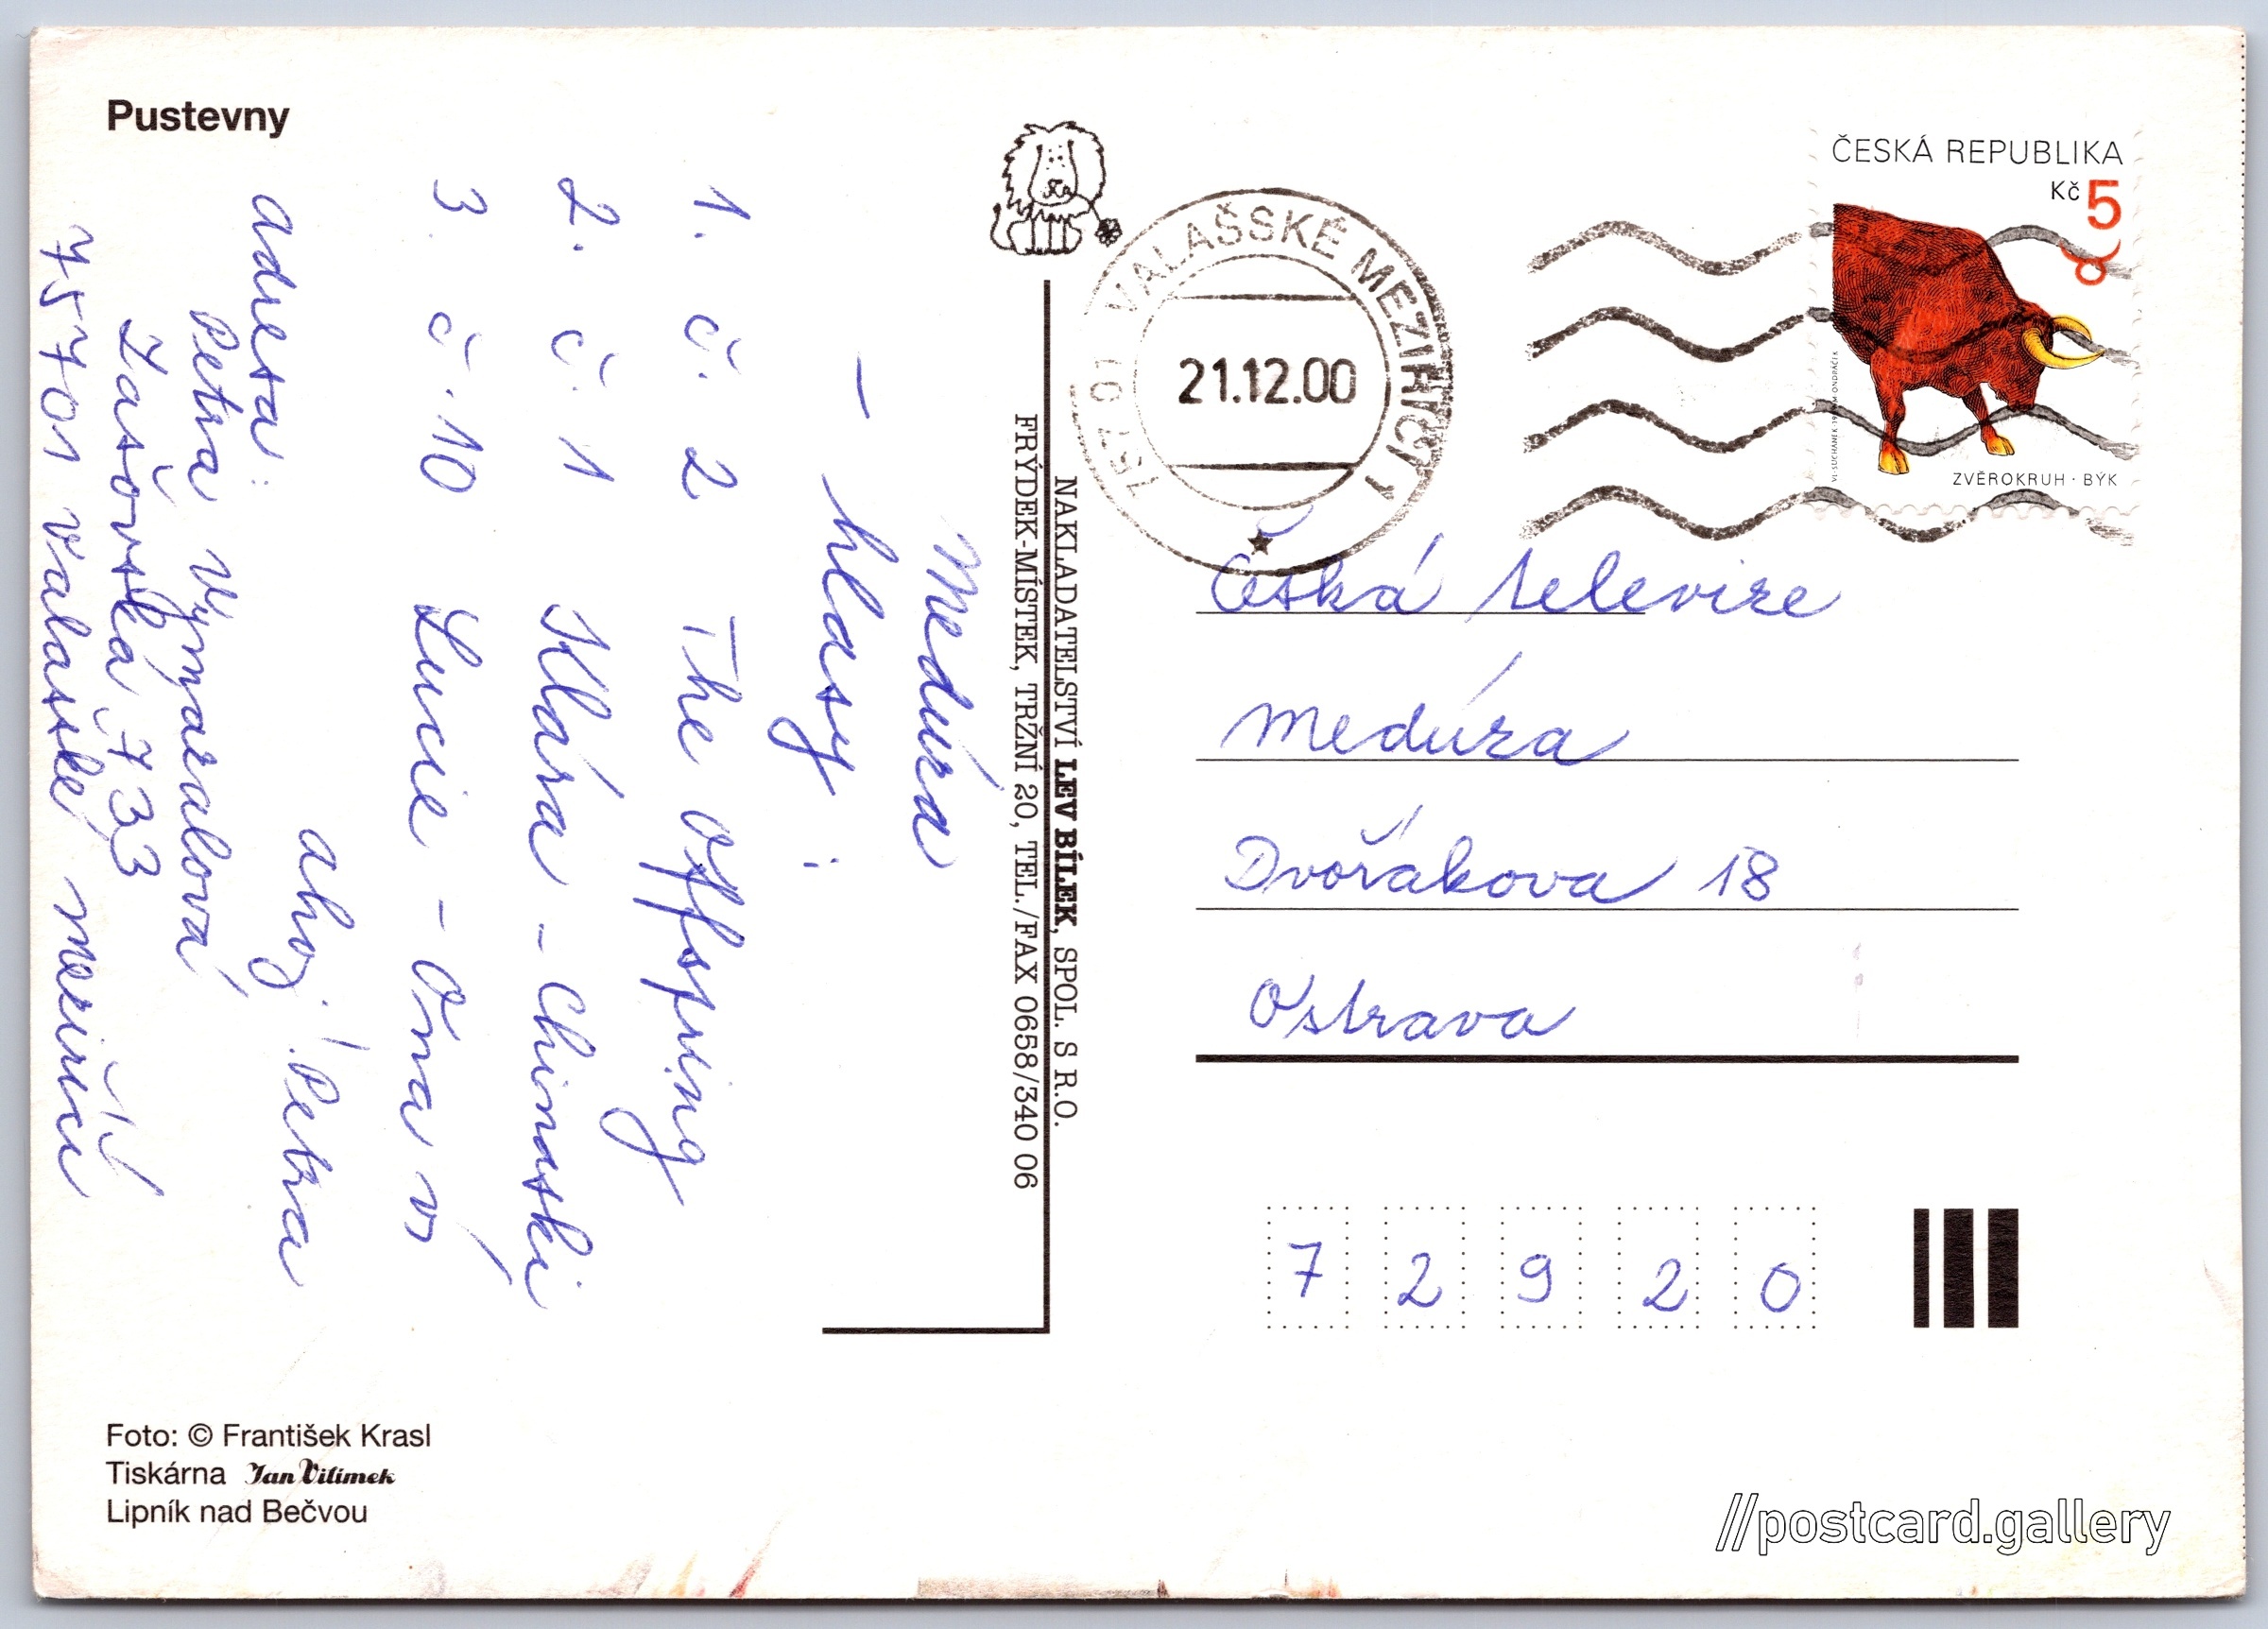 Pustevny
Medúza
- hlasy :
1. č. 2 The Offspring
2. č. 1 Klára - Chinaski
3. č. 10 Lucie - Ořna
ahoj! Petra
adresa:
Petra Vymazalová
Zašovská 733
75701 Valašské Meziříčí
NAKLADATELSTVÍ LEV BÍLEK, SPOL. S R.O.
FRÝDEK-MÍSTEK, TRŽNÍ 20, TEL./FAX 0658/340 06
757 01 VALAŠSKÉ MEZIŘÍČÍ 1
21.12.00
ČESKÁ REPUBLIKA
Kč 5
ZVĚROKRUH · BÝK
Česká televize
Medúza
Dvořákova 18
Ostrava
7 2 9 2 0
Foto: © František Krasl
Tiskárna Jan Vilímek
Lipník nad Bečvou
//postcard.gallery